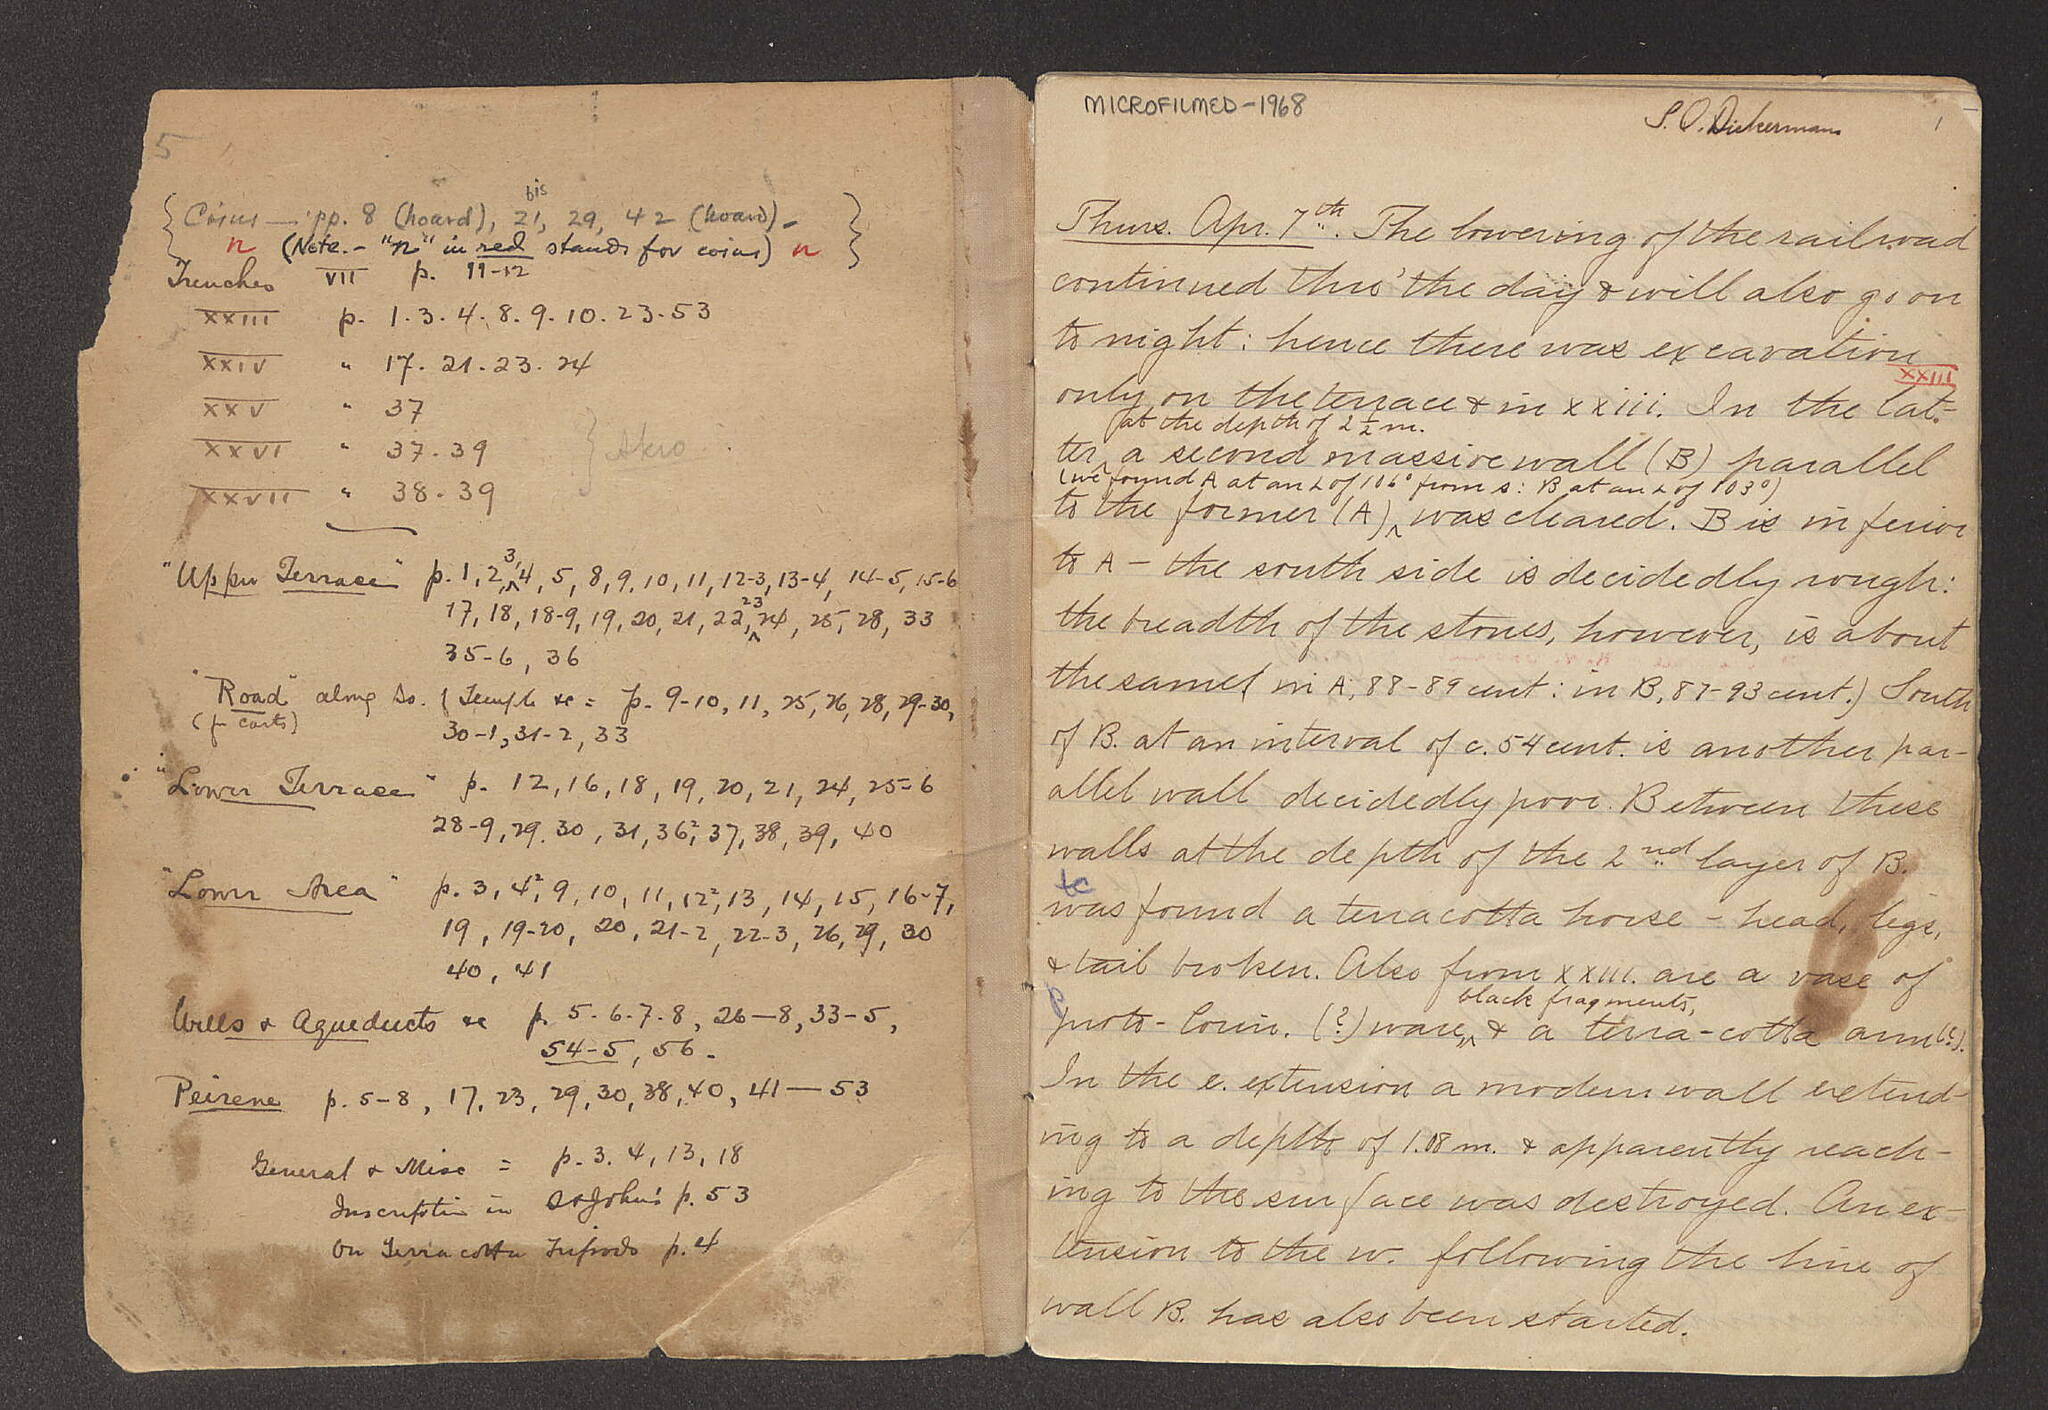 5
bis
Coins — pp. 8 (hoard), 21, 29, 42 (hoard) -
n (Note. - "n" in red stands for coins) n
Trenches VII p. 11-12
XXIII p. 1.3.4.8.9.10.23.53
XXIV " 17.21.23.24
XXV " 37
XXVI " 37.39
XXVII " 38.39
Akro
3,
"Upper Terrace" p. 1, 2, 4, 5, 8, 9, 10, 11, 12-3, 13-4, 14-5, 15-6
23
17, 18, 18-9, 19, 20, 21, 22, 24, 25, 28, 33
35-6, 36
"Road" along So. ( Temple &c = p. 9-10, 11, 25, 26, 28, 29-30,
(for carts) 30-1, 31-2, 33
"Lower Terrace" p. 12, 16, 18, 19, 20, 21, 24, 25-6
28-9, 29. 30, 31, 36², 37, 38, 39, 40
"Lower Area" p. 3, 4², 9, 10, 11, 12², 13, 14, 15, 16-7,
19, 19-20, 20, 21-2, 22-3, 26, 29, 30
40, 41
Wells & Aqueducts &c p. 5-6-7-8, 26—8, 33-5,
54-5, 56.
Peirene p. 5-8, 17, 23, 29, 30, 38, 40, 41—53
General & Misc = p. 3. 4, 13, 18
Inscription in St John's p. 53
On Terra cotta Tripods p. 4
MICROFILMED-1968
S. O. Dickerman
1
Thurs. Apr. 7th. The lowering of the railroad
continued thro' the day & will also go on
to night: hence there was excavation
XXIII
only on the terrace & in xxiii. In the lat-
at the depth of 2½ m.
ter a second massive wall (B) parallel
(we found A at an ∠ of 106° from s: B at an ∠ of 103°)
to the former (A) was cleared. B is inferior
to A - the south side is decidedly rough:
the breadth of the stones, however, is about
the same (in A, 88-89 cent: in B, 87-93 cent.) South
of B. at an interval of c. 54 cent. is another par-
allel wall decidedly poor. Between these
walls at the depth of the 2nd layer of B.
tc
was found a terracotta horse - head, legs,
& tail broken. Also from xxiii. are a vase of
P
black fragments,
proto-Corin. (?) ware, & a terra-cotta arm (?).
In the e. extension a modern wall extend-
ing to a depth of 1.08 m. & apparently reach-
ing to the surface was destroyed. An ex-
tension to the w. following the line of
wall B. has also been started.